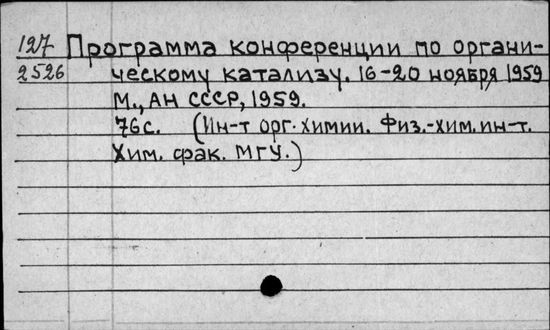 127 Программа конференции по органи-
2526 ческому катализу. 16-20 ноября 1959
М., АН СССР, 1959.
76с. (Ин-т орг. химии. Физ.-хим. ин-т.
Хим. фак. МГУ.)